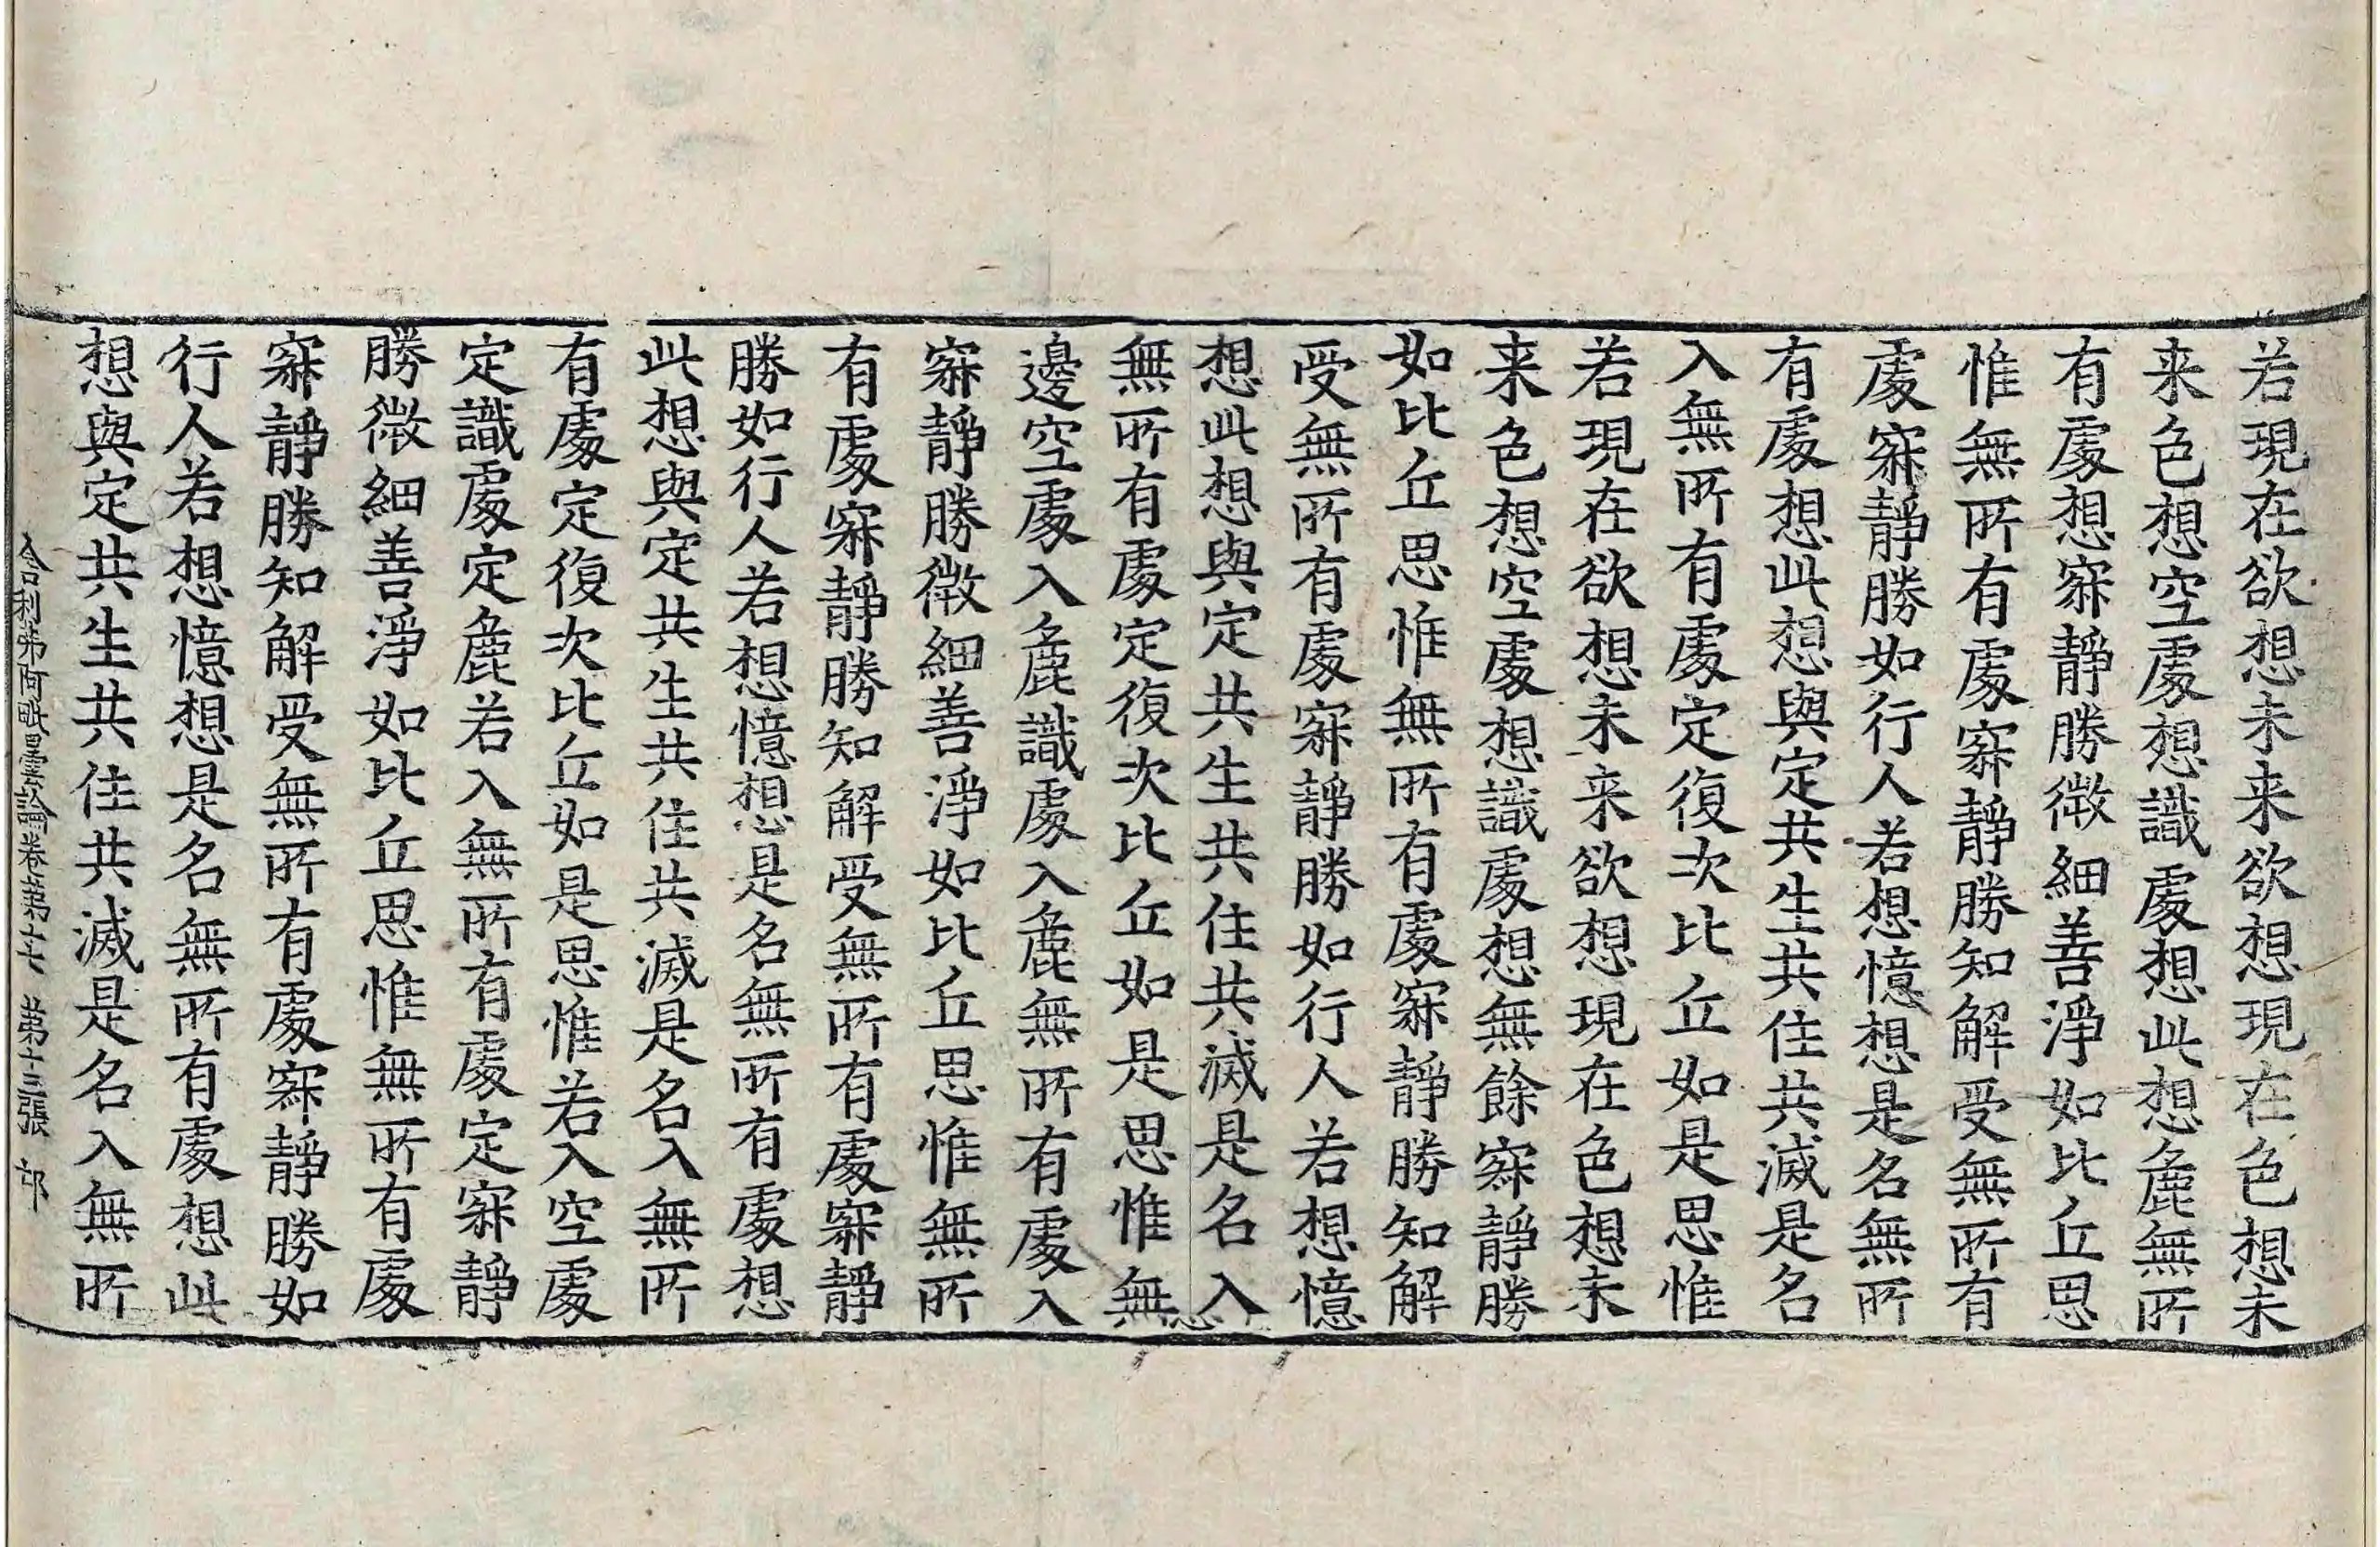 若現在欲想未来欲想現在色想未
来色想空處想識處想此想麁無所
有處想寂靜勝微細善淨如比丘思
惟無所有處寂靜勝知解受無所有
處寂靜勝如行人若想憶想是名無所
有處想此想與定共生共住共滅是名
入無所有處定復次比丘如是思惟
若現在欲想未来欲想現在色想未
来色想空處想識處想無餘寂靜勝
如比丘思惟無所有處寂靜勝知解
受無所有處寂靜勝如行人若想憶
想此想與定共生共住共滅是名入
無所有處定復次比丘如是思惟無
邊空處入麁識處入麁無所有處入
寂靜勝微細善淨如比丘思惟無所
有處寂靜勝知解受無所有處寂靜
勝如行人若想憶想是名無所有處想
此想與定共生共住共滅是名入無所
有處定復次比丘如是思惟若入空處
定識處定麁若入無所有處定寂靜
勝微細善淨如比丘思惟無所有處
寂靜勝知解受無所有處寂靜勝如
行人若想憶想是名無所有處想此
想與定共生共住共滅是名入無所
舍利弗阿毗曇論卷第十六 第十三張